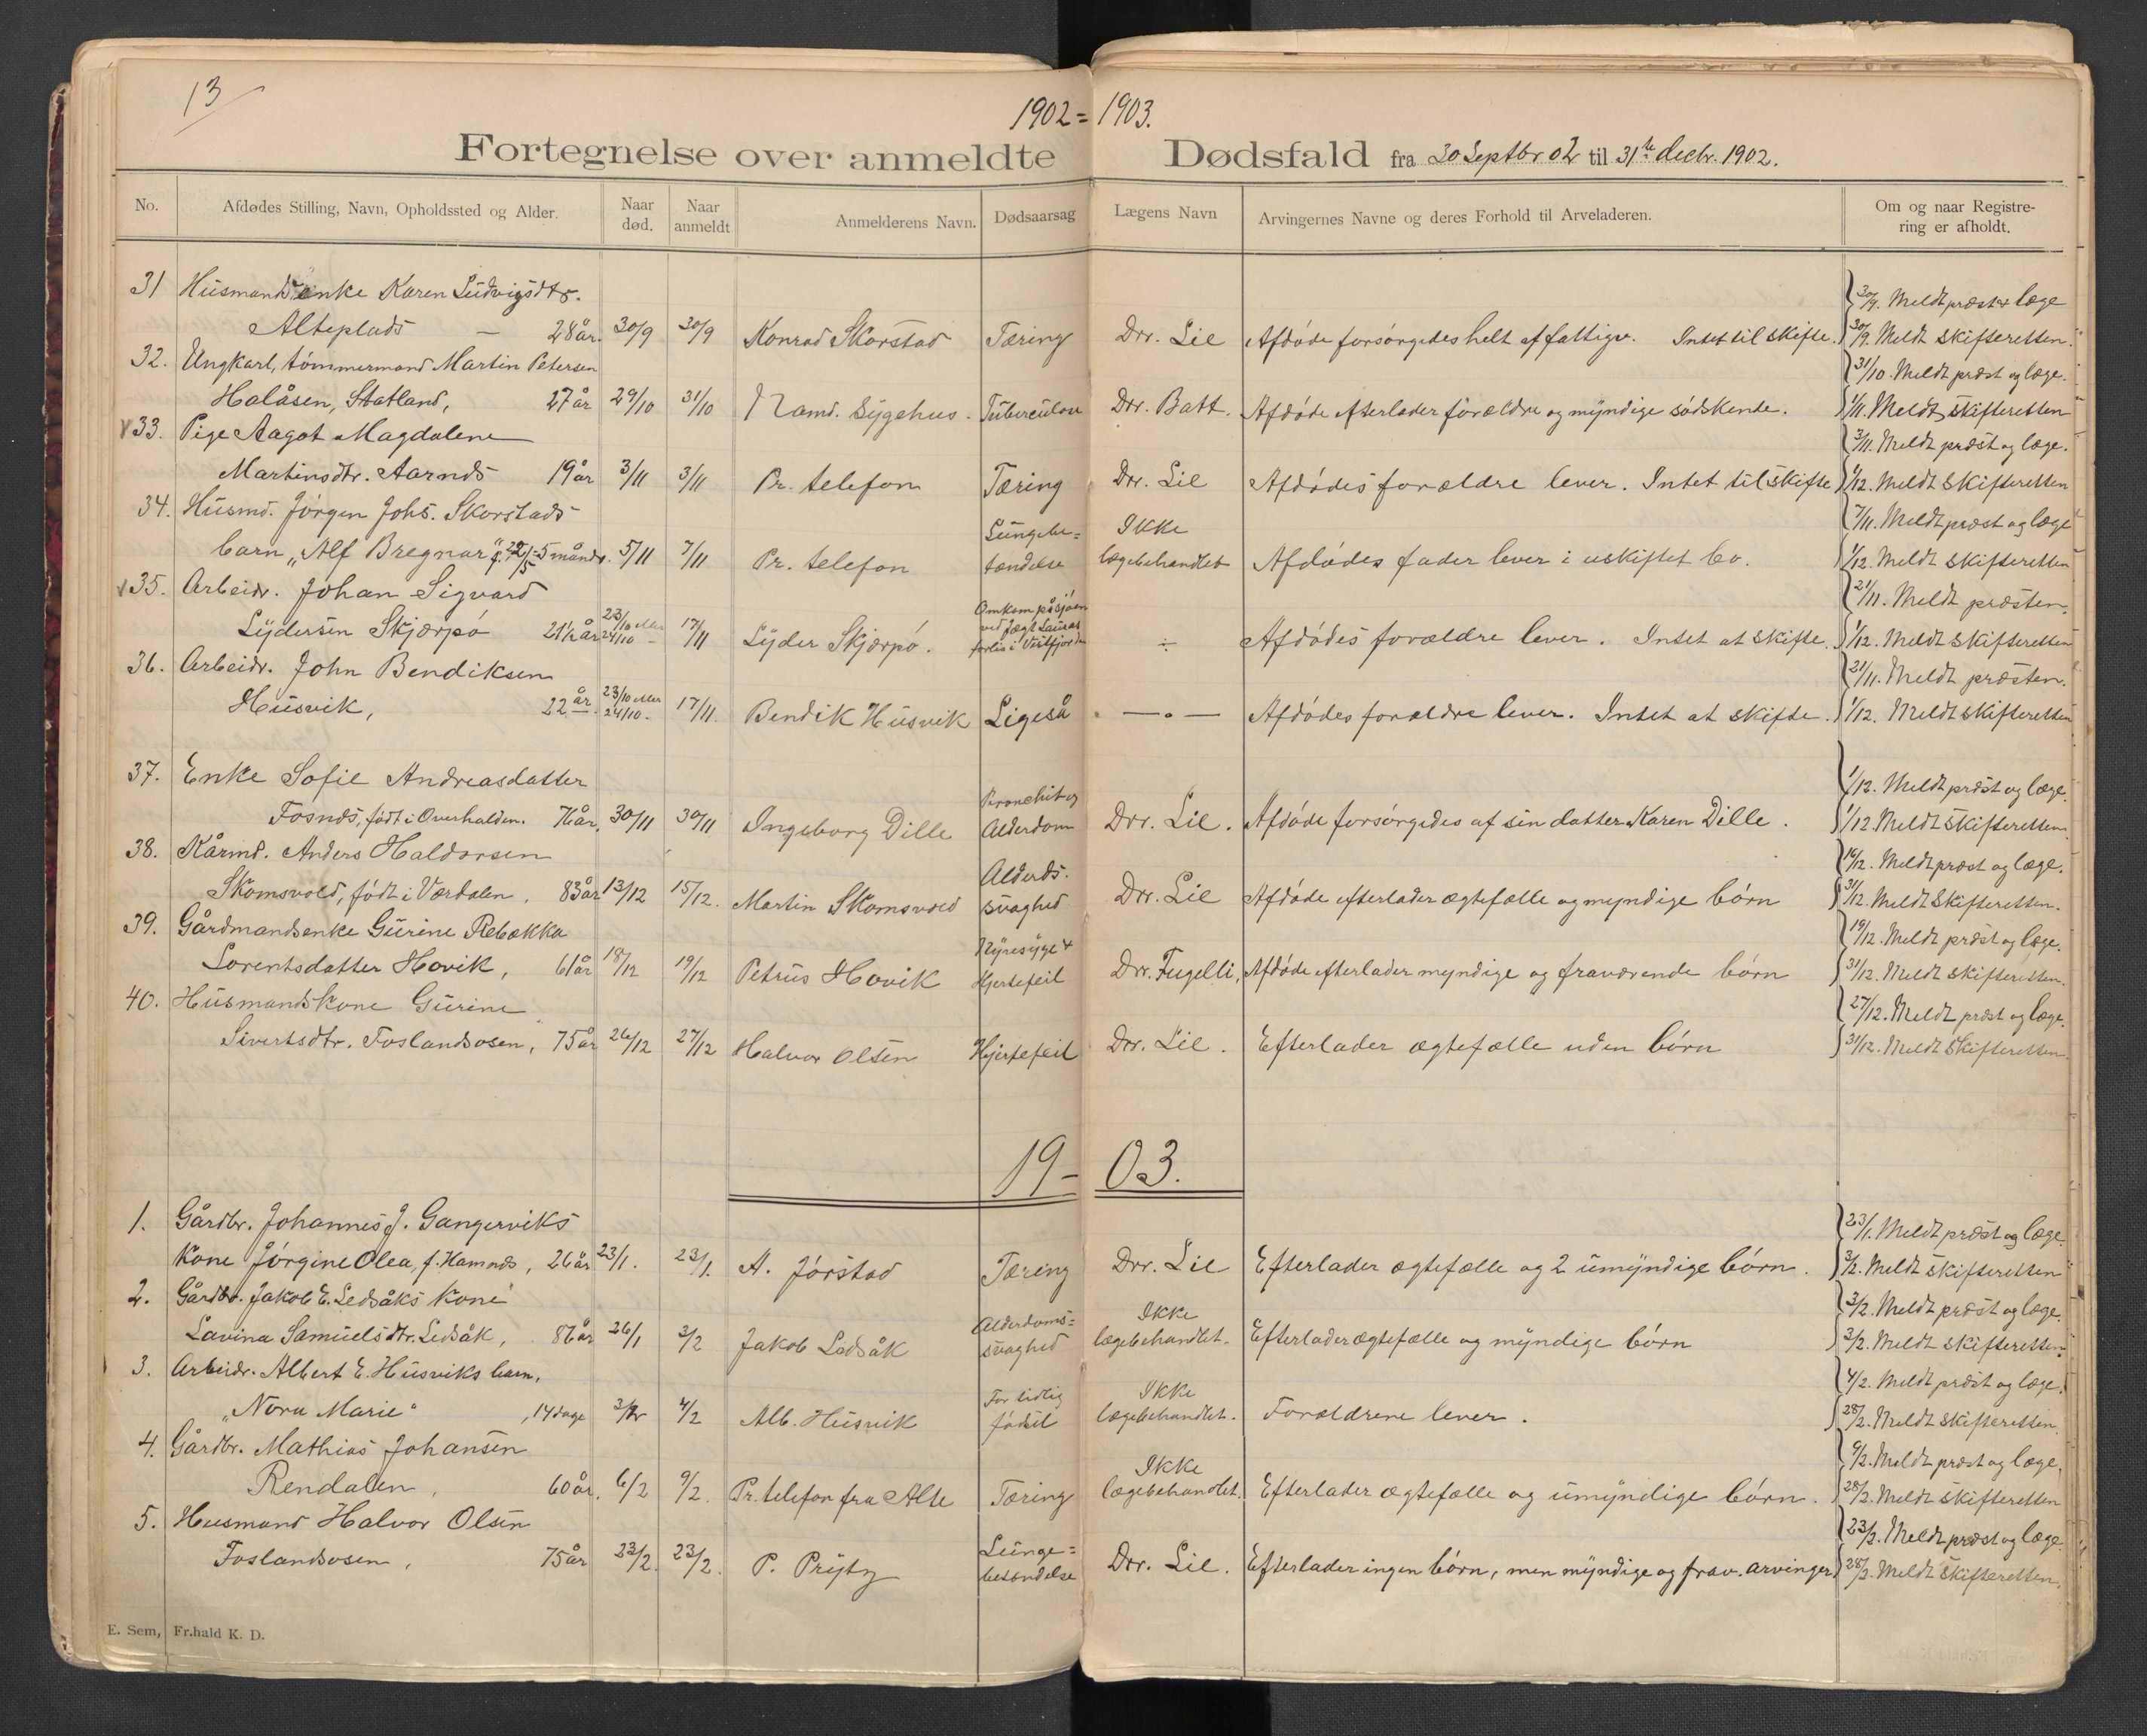 13
1902 = 1903.
Fortegnelse over anmeldte Dødsfald fra 30 Septbr 02 til 31te decbr. 1902.
No. Afdødes Stilling, Navn, Opholdssted og Alder. Naar død. Naar anmeldt Anmelderens Navn. Dødsaarsag Lægens Navn Arvingernes Navne og deres Forhold til Arveladeren. Om og naar Registrering er afholdt.
31 Husmandsenke Karen Ludvigsdtr. 30/9. Meldt præst & læge
Alteplads — 28 år. 30/9 30/9 Konrad Skorstad Tæring Dr. Lie Afdøde forsørgedes helt af fattigv. Intet til skifte. 30/9. Meldt skifteretten.
32. Ungkarl, tømmermand Martin Petersen 31/10. Meldt præst og læge.
Halåsen, Statland, 27 år 29/10 31/10 Namd. Sygehus. Tuberculou Dr. Batt. Afdøde efterlader forældre og myndige sødskende. 1/11. Meldt skifteretten
33. Pige Aagot Magdalene 3/11. Meldt præst og læge.
Martinsdtr. Aarnds 19 år 3/11 3/11 Pr. telefon Tæring Dr. Lie Afdødes forældre lever. Intet til skifte 1/12. Meldt skifteretten
34. Husmd. Jørgen Johs. Skorstads Lungebe= Ikke 7/11. Meldt præst og læge
barn „Alf Bregnar“ f. 22/5 - 5 måndr. 5/11 7/11 Pr. telefon tændelse lægebehandlet Afdødes fader lever i uskiftet bo. 1/12. Meldt skifteretten
35. Arbeidr. Johan Sigvard 21/11. Meldt præsten.
Lydersen Skjærpø 21½ år 23/10 eller 24/10 - 17/11 Lyder Skjærpø. Omkom på sjøen ved jægt Lauras forlis i Vestfjorden ÷ Afdødes forældre lever. Intet at skifte. 1/12. Meldt skifteretten
36. Arbeidr. John Bendiksen 21/11. Meldt præsten.
Husvik, 22 år. 23/10 eller 24/10 - 17/11. Bendik Husvik Ligeså — . — Afdødes forældre lever. Intet at skifte. 1/12. Meldt skifteretten
37. Enke Sofie Andreasdatter Bronchit og 1/12. Meldt præst og læge.
Fosnds, født i Overhalden. 76 år. 30/11 30/11 Ingeborg Dille Alderdom Dr. Lie. Afdøde forsørgedes af sin datter Karen Dille. 1/12 Meldt skifteretten.
38. Kårmd. Anders Haldorsen Alderds. 16/12. Meldt præst og læge.
Skomsvold, født i Værdalen, 83 år 13/12 15/12. Martin Skomsvold svaghed Dr. Lie Afdøde efterlader ægtefælle og myndige børn 31/12. Meldt skifteretten.
39. Gårdmandsenke Gurine Rebækka Nyresyge & 19/12. Meldt præst og læge.
Lorentsdatter Hovik, 61 år 18/12 19/12 Petrus Hovik Hjertefeil Dr. Fugelli, Afdøde efterlader myndige og fraværende børn 31/12. Meldt skifteretten.
40. Husmandskone Gurine 27/12. Meldt præst og læge.
Sivertsdtr. Foslandsosen, 75 år 26/12 27/12 Halvor Olsen Hjertefeil Dr. Lie. Efterlader ægtefælle uden børn 31/12. Meldt skifteretten.
19 - 03.
1. Gårdbr. Johannes J. Gangerviks 23/1. Meldt præst og læge.
Kone Jørgine Olea, f. Hamnds, 26 år 23/1. 23/1. A. Jørstad Tæring Dr. Lie Efterlader ægtefælle og 2 umyndige børn. 3/2. Meldt skifteretten
2. Gårdbr. Jakob E. Ledsåks kone Alderdoms= Ikke 3/2. Meldt præst og læge.
Lavina Samuelsdtr. Ledsåk, 86 år 26/1 3/2 Jakob Ledsåk svaghed lægebehandlet. Efterlader ægtefælle og myndige børn 3/2. Meldt skifteretten.
3. Arbeidr. Albert E. Husviks barn, For tidlig Ikke 4/2. Meldt præst og læge.
„Nora Marie“, 14 dage 3/2 4/2 Alb. Husvik født lægebehandlet. Forældrene lever. 28/2. Meldt skifteretten.
4. Gårdbr. Mathias Johansen Ikke 9/2. Meldt præst og læge,
Rendalen, 60 år. 6/2 9/2. Pr. telefon fra Alte Tæring lægebehandlet. Efterlader ægtefælle og umyndige børn. 28/2. Meldt skifteretten
5. Husmand Halvor Olsen Lunge= 23/2. Meldt præst og læge.
Foslandsosen, 75 år 23/2. 23/2. P. Prytz betændelse Dr. Lie. Efterlader ingen børn, men myndige og frav. arvinger 28/2. Meldt skifteretten.
E. Sem, Fr.hald K. D.